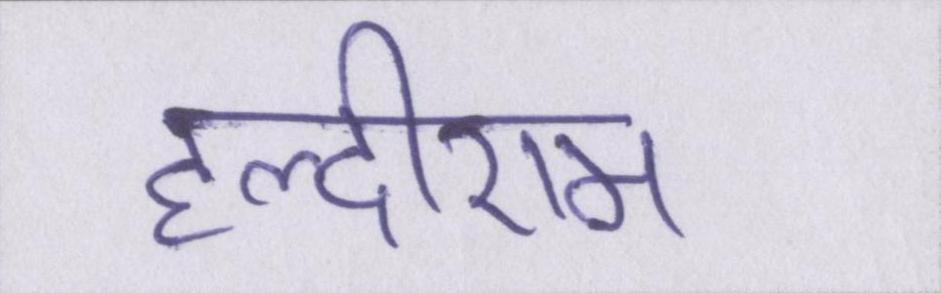 हल्दीराम